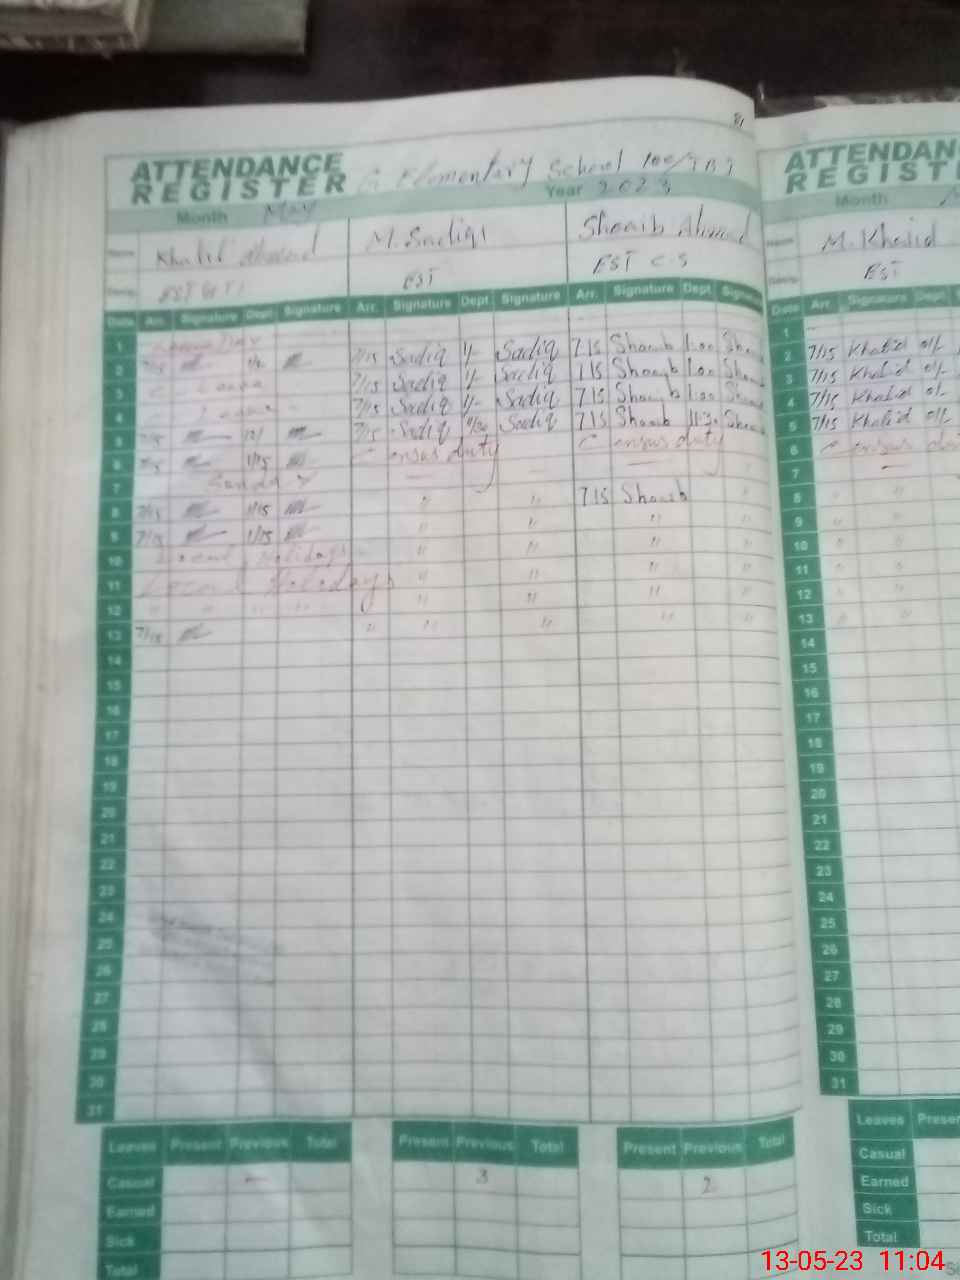 81
ATTENDANCE REGISTER G Elementary School
Month May Year 2023
Name Khalil Ahmad M. Sadiq Shoaib Ahmad
EST EST EST C.S
Date Arr. Signature Dept Signature Arr. Signature Dept Signature Arr. Signature Dept Signature
1
2 7/15 7/15 Sadiq 1/- Sadiq 7 15 Shoaib 1:00
3 Leave 7/15 Sadiq 1/- Sadiq 7 15 Shoaib 1:00
4 Leave 7/15 Sadiq 1/- Sadiq 7 15 Shoaib 1:00
5 7/15 12/ 7/15 Sadiq Sadiq 7 15 Shoaib 11:30
6 7/15 1/15 Census duty Census duty
7 Sunday
8 7/15 1/15 " " 7 15 Shoaib "
9 7/15 1/15 " " " "
10 Local Holidays " " " "
11 Local Holidays " " " "
12 " " " " " " " "
13 7/15 " " " " "
14
15
16
17
18
19
20
21
22
23
24
25
26
27
28
29
30
31
Leaves Present Previous Total Present Previous Total Present Previous Total
Casual - 3 2
Earned
Sick
Total
ATTENDAN
REGIST
Month
M. Khalid
EST
Date Arr. Signature Dept
1
2 7/15 Khalid 01/-
3 7/15 Khalid 01/-
4 7/15 Khalid 01/-
5 7/15 Khalid 01/-
6 Census
7 -
8 " "
9 " "
10 " "
11 " "
12 " "
13 " "
14
15
16
17
18
19
20
21
22
23
24
25
26
27
28
29
30
31
Leaves Presen
Casual
Earned
Sick
Total
13-05-23 11:04